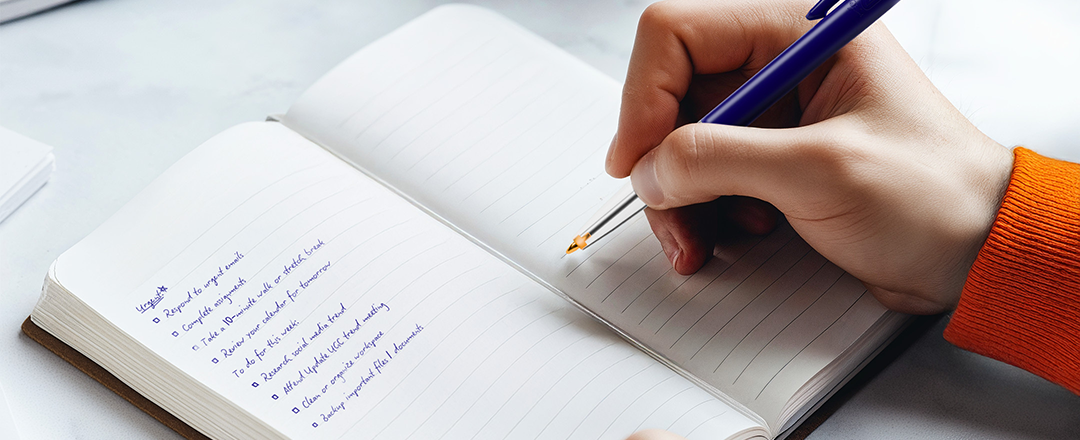 Urgent*
Respond to urgent emails
Complete assignments
Take a 10-minute walk or stretch break
Review your calendar for tomorrow
To do for this week:
Research social media trend
Attend Update UGC trend meeting
Clean or organize workspace
Backup important files / documents